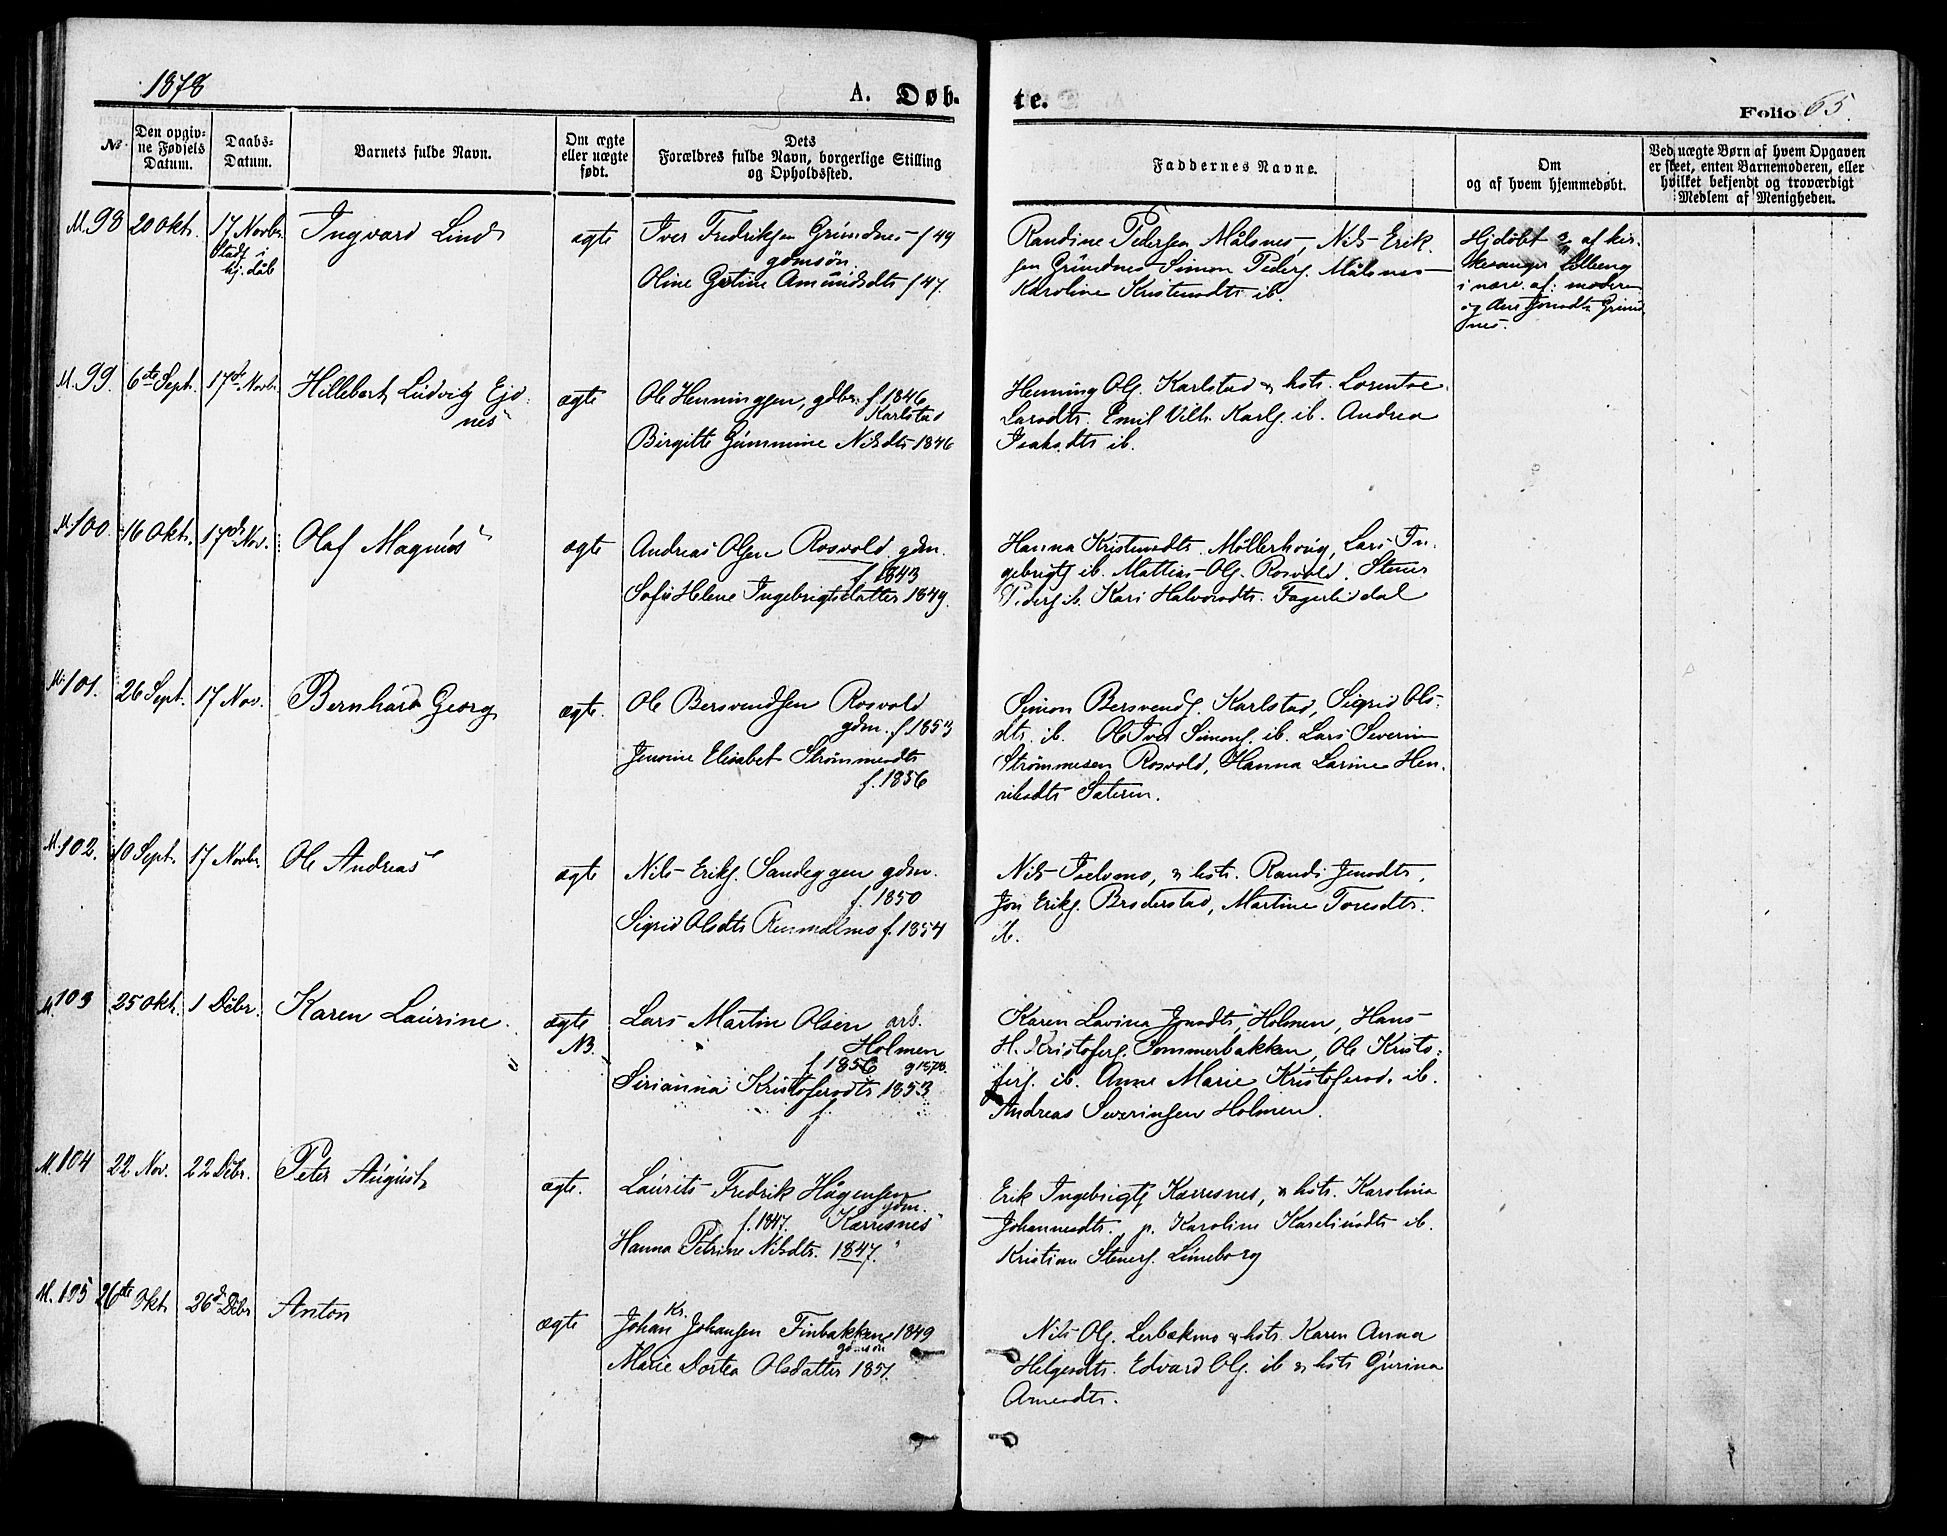 1878
A. Døb-
te.
Folio 65.
№
Den opgiv-
ne Fødsels
Datum.
Daabs-
Datum.
Barnets fulde Navn.
Om ægte
eller uægte
født.
Dets
Forældres fulde Navn, borgerlige Stilling
og Opholdssted.
Faddernes Navne.
Om
og af hvem hjemmedøbt.
Ved uægte Børn af hvem Opgaven
er skeet, enten Barnemoderen, eller
hvilket bekjendt og troværdigt
Medlem af Menigheden.
M. 98
20 Okt.
17 Novbr.
Stadf. i
hj. dåb
Ingvard Lind
ægte
Iver Fredriksen Grundnes f 49
gdmsøn
Oline Gjetine Amundsdtr f 47.
Randine Pedersen Målsnes, Nils Erik-
sen Grundnes Simon Peders. Målsnes
Karoline Kristensdtr ib.
Hjdøbt af kir-
kesanger Solberg
i nærv. af moderen
og Ane Jonsdtr Grund
nes.
M. 99.
6te Sept.
17de Novbr.
Hillebert Ludvig Ejd-
nes
ægte
Ole Henningsen, gdbr. f 1846
Karlstad
Birgitte Gunmine Nilsdtr 1846
Henning Ols. Karlstad & hstr. Lorentse
Larsdtr. Emil Vilh. Karls. ib. Andrea
Isaksdtr ib.
M. 100.
16 Okt.
17de Nov.
Olaf Magnus
ægte
Andreas Olsen Rosvold gdm.
f 1843
Sofie Helene Ingebrigtsdatter 1849.
Hanna Kristensdtr. Møllerhaug, Lars In-
gebrigts ib. Mattias Ols. Rosvold. Stener
Peders ib. Kari Halvorsdtr. Fagerlidal
M. 101.
26 Sept.
17 Nov.
Bernhard Georg
ægte.
Ole Bersvendsen Rosvold
gdm. f. 1853
Jensine Elisabet Strømmesdtr
f. 1856
Simon Bersvends. Karlstad, Sigrid Ols-
dtr. ib. Ole Iver Simons. ib. Lars Severin
Strømmesen Rosvold, Hanna Larine Hen-
riksdtr Sæteren.
M. 102.
10 Sept.
17 Novbr.
Ole Andreas
ægte
Nils Eriks. Sandeggen gdm.
f. 1850
Sigrid Olsdtr Rundmo f. 1854
Nils Iselvmo, & hstr. Randi Jensdtr,
Jon Eriks. Braderstad, Martine Toresdtr.
ib.
M. 103
25 Okt.
1 Debr.
Karen Laurine
ægte
NB.
Lars Martin Olsen arb.
Holmen
f 1856 g 1878.
Sirianna Kristofersdtr 1853
f.
Karen Lavina Jonsdtr, Holmen, Hans
H. Kristofers. Sommerbakken, Ole Kristo-
fers. ib. Anne Marie Kristofersd. ib.
Andreas Severinsen Holmen.
M. 104
22 Nov.
22 Debr.
Peter August
ægte.
Laurits Fredrik Hågensen
gdm.
f. 1847. Kærresnes
Hanna Petrine Nilsdtr. 1847. "
Erik Ingebrigts Kærresnes, & hstr. Karolina
Johannesdtr. p. Karoline Kareliusdtr ib.
Kristian Steners. Luneborg
M. 105
26te Okt.
26de Debr
Anton
ægte
Johan Kr. Johansen Finbakken 1849
gdmsøn
Marie Dortea Olsdatter 1851.
Nils Ols. Lerbækmo & hstr. Karen Anna
Helgesdtr. Edvard Ols. ib & hstr Gurina
Arnesdtr.